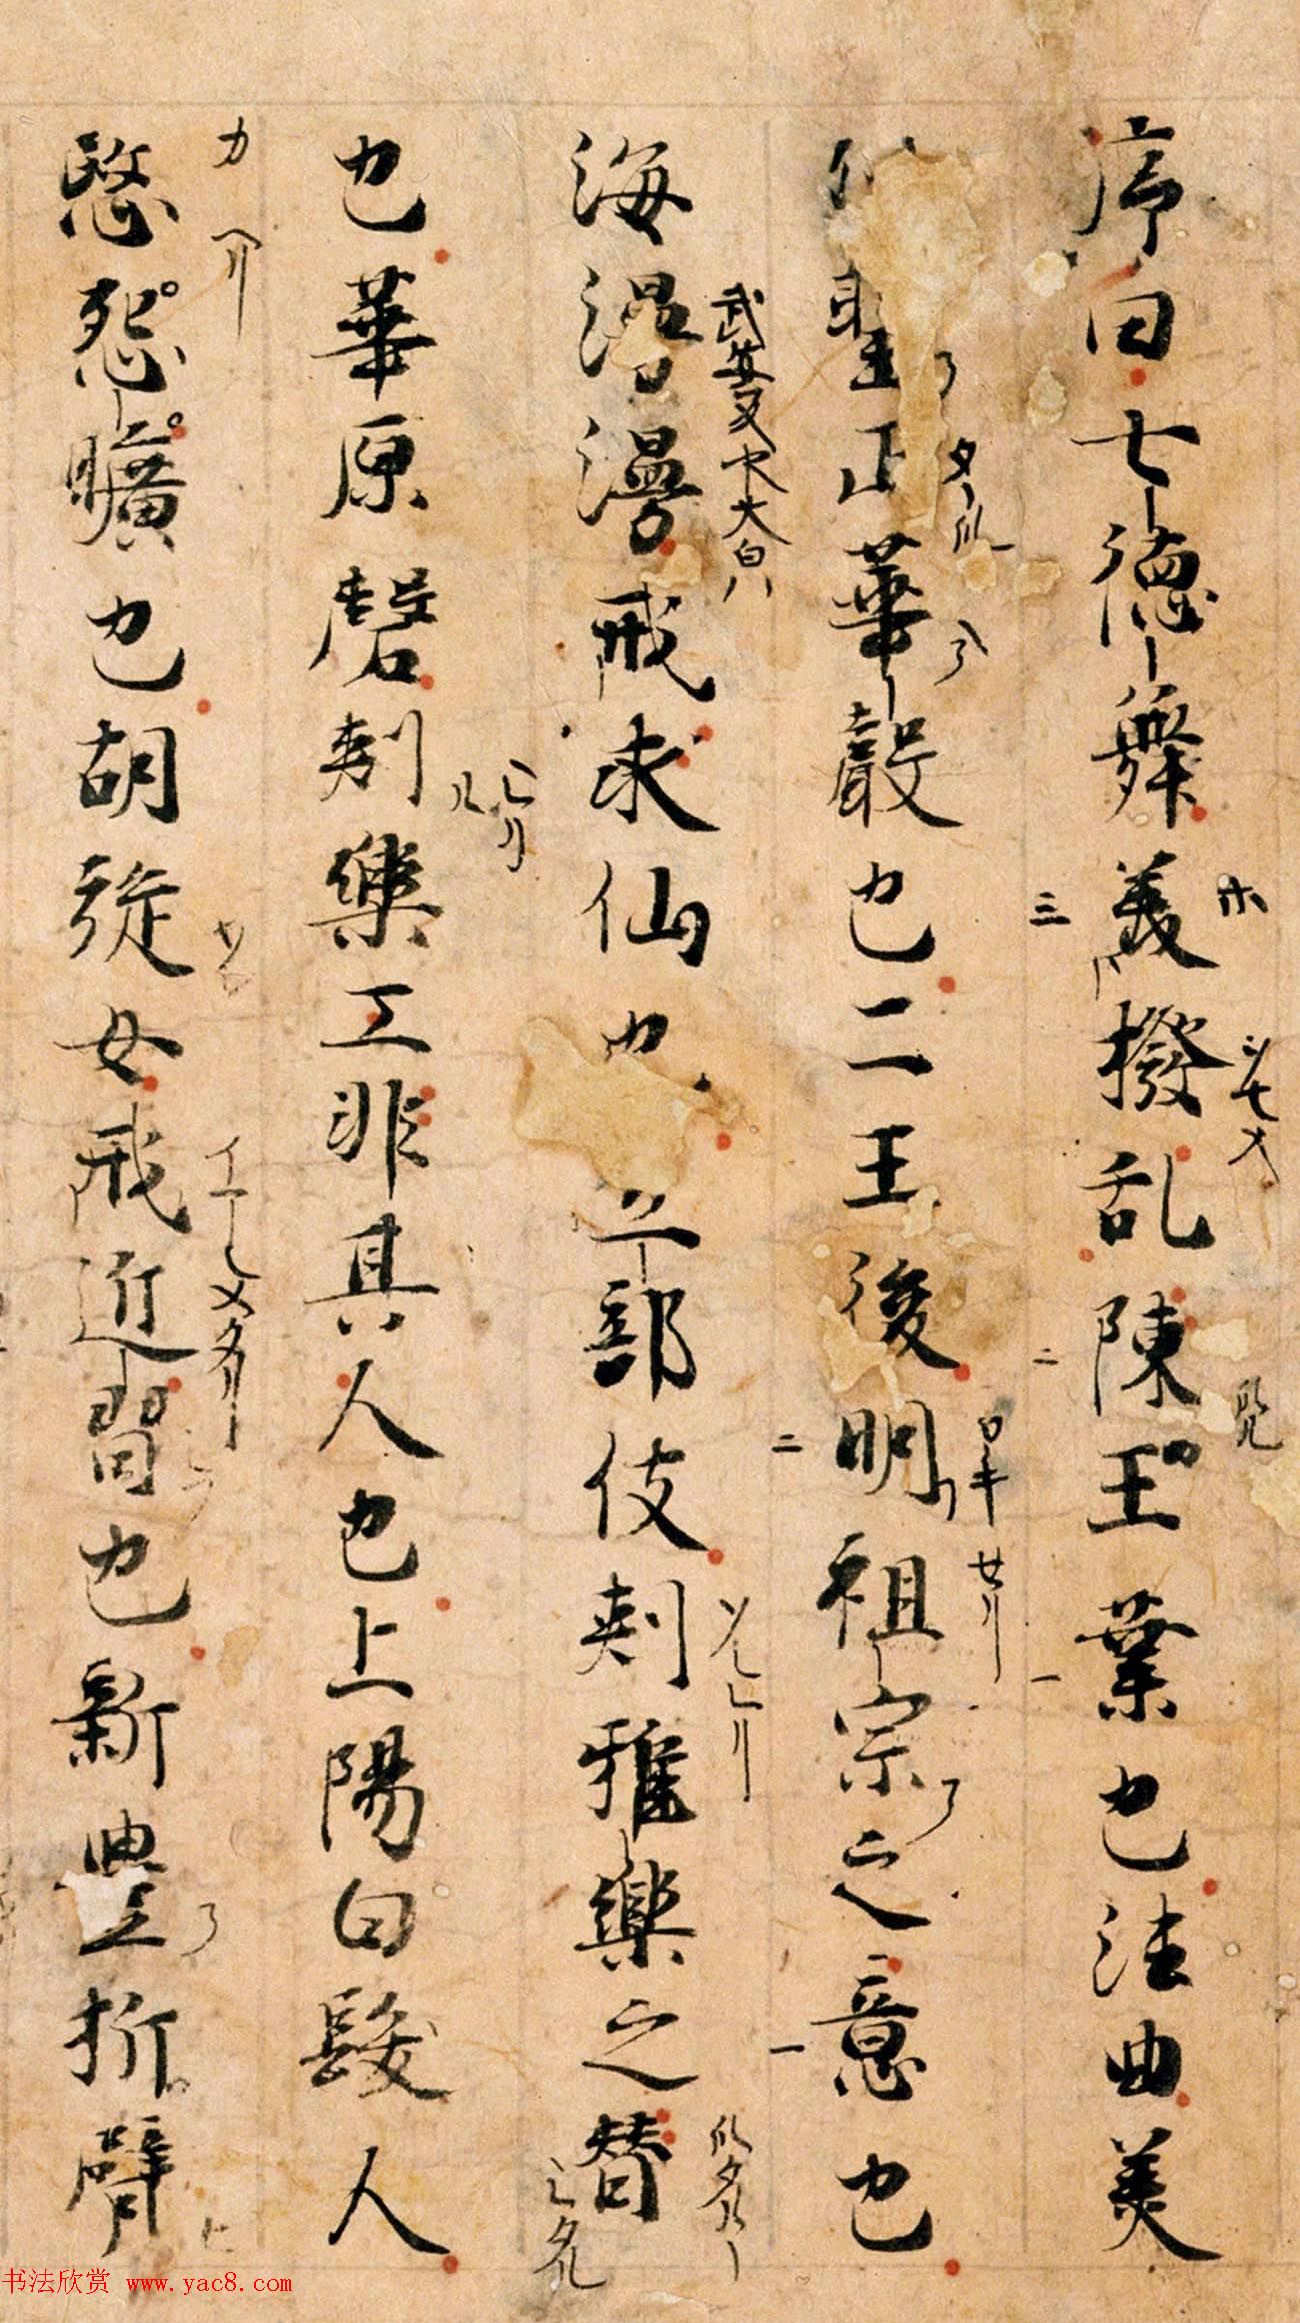 序曰七德舞美撥乱陳王業也法曲美
列聖正華聲也二王後明祖宗之意也
海漫漫戒求仙也立部伎刺雅樂之替
也華原磬刺樂工非其人也上陽白髮人
愍怨曠也胡旋女戒近習也新豊折臂
书法欣赏 www.yac8.com